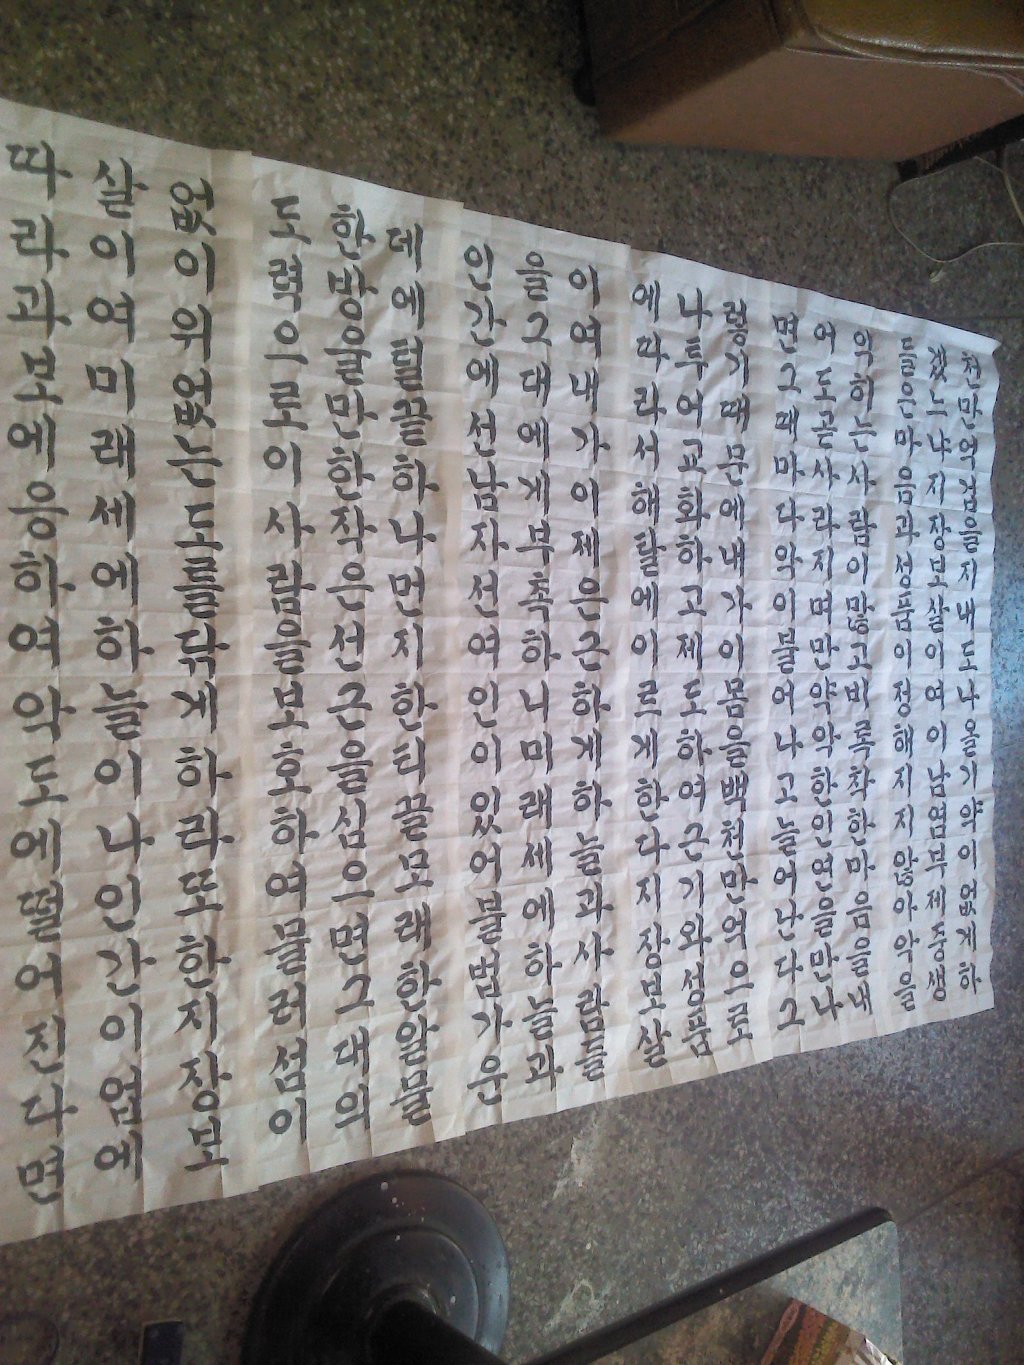 천만억겁을지내도나올기약이없게하
겠느냐지장보살이여이남염부제중생
들은마음과성품이정해지지않아악을
악하는사람이많고비록착한마음을내
여도곧사라지며만약악한인연을만나
면그때마다악이불어나고늘어난다그
렇기때문에내가이몸을백천만억으로
나투어교화하고제도하여근기와성품
에따라서해탈에이르게한다지장보살
이여내가이제은근하게하늘과사람들
을그대에게부촉하니미래세에하늘과
인간에선남자선여인이있어불법가운
데에털끝하나먼지한티끌모래한알물
한방울만한작은선근을심으면그대의
도력으로이사람을보호하여물러섬이
없이위없는도를닦게하라또한지장보
살이여미래세에하늘이나인간이업에
따라과보에응하여악도에떨어진다면